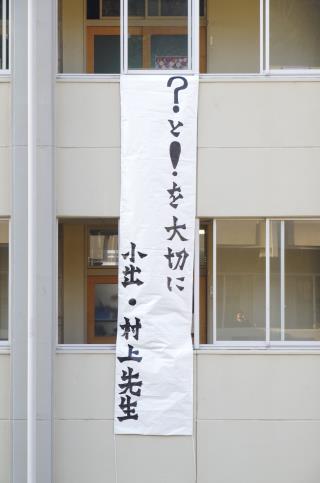 ？と！を大切に
小出・村上先生